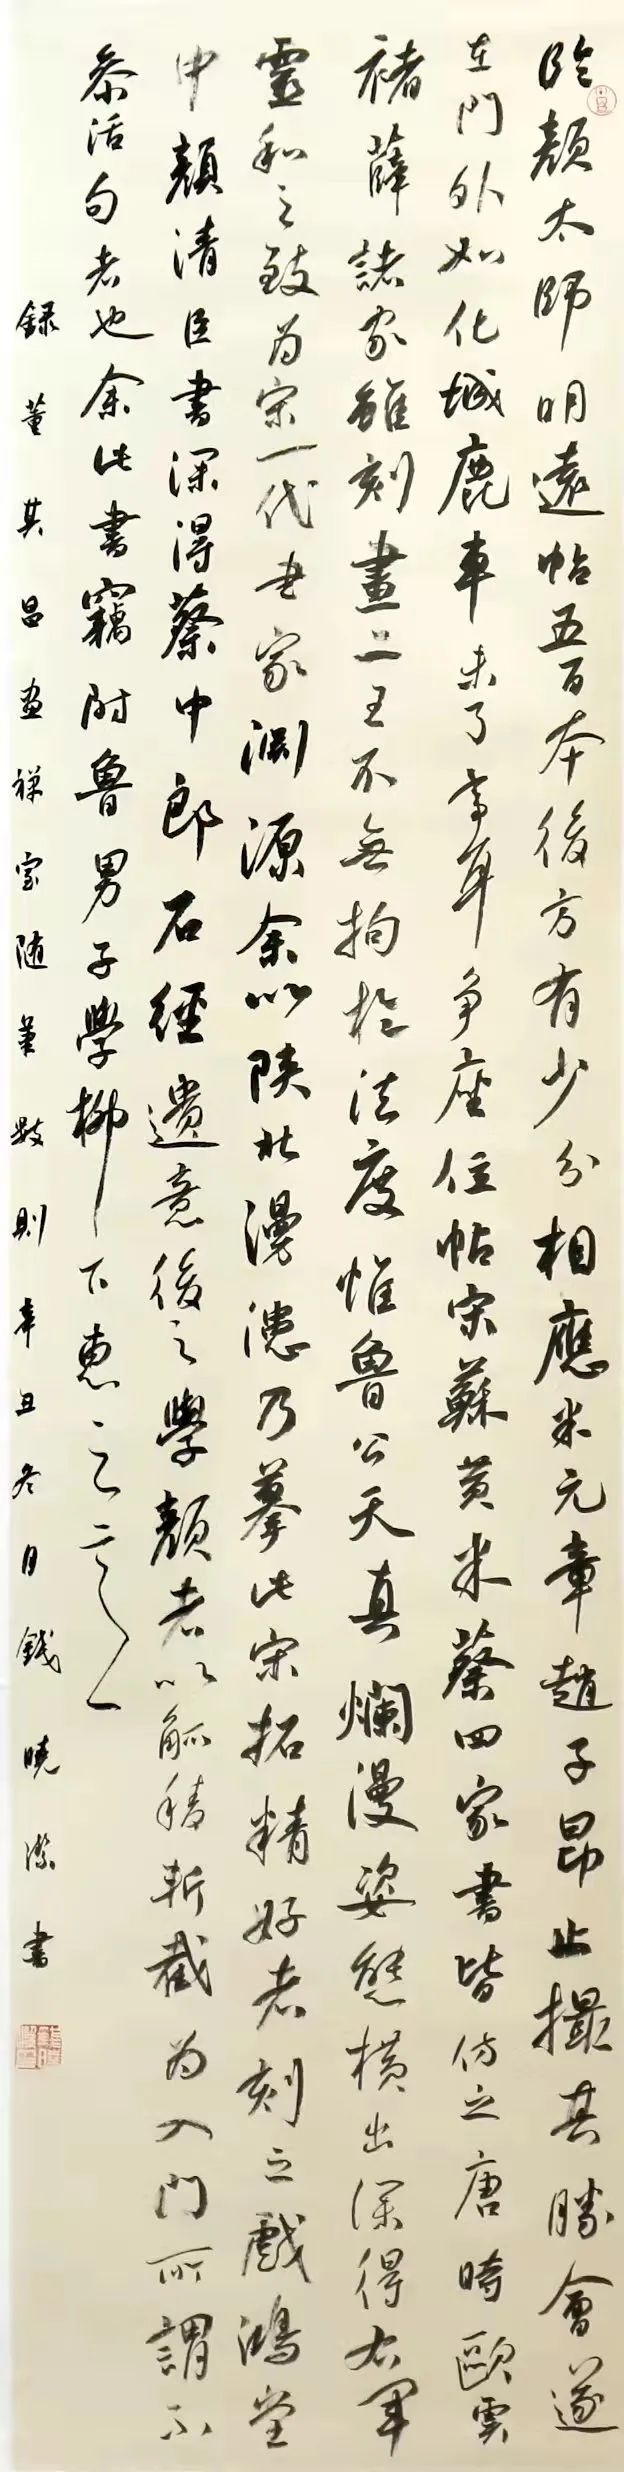 临颜太师明遠帖五百本後方有少分相應米元章趙子昂止撮其勝會遂
在門外如化城鹿車未了事耳争座位帖宋蘇黄米蔡四家書皆仿之唐時歐虞
褚薛諸家雖刻畫二王不無拘於法度惟魯公天真爛漫姿態橫出深得右軍
靈和之致为宋一代书家淵源余以陕北漫漶乃摹此宋拓精好者刻之戲鴻堂
中顔清臣書深得蔡中郎石經遺意後之學顔者以觚稜斬截为入門所謂不
参活句者也余此書竊附魯男子學柳下惠之意
録董其昌画禅室随筆数则辛丑冬月錢曉潔書